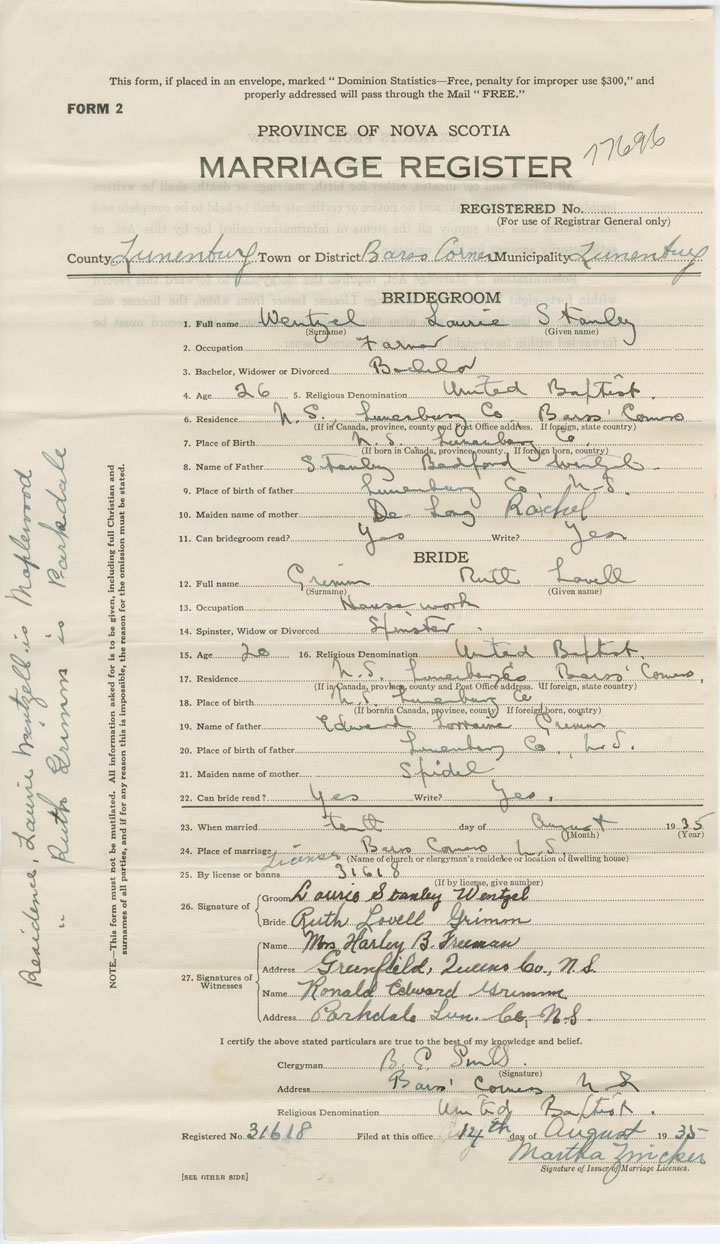 This form, if placed in an envelope, marked " Dominion Statistics—Free, penalty for improper use $300," and
properly addressed will pass through the Mail " FREE."
FORM 2
PROVINCE OF NOVA SCOTIA
17696
MARRIAGE REGISTER
REGISTERED No.
(For use of Registrar General only)
County Lunenburg Town or District Barss Corner Municipality Lunenburg
BRIDEGROOM
1. Full name Wentzel Laurie Stanley
(Surname) (Given name)
2. Occupation Farmer
3. Bachelor, Widower or Divorced Bachelor
4. Age 26 5. Religious Denomination United Baptist.
6. Residence N.S., Lunenburg Co., Barss' Corners
(If in Canada, province, county and Post Office address. If foreign, state country)
7. Place of Birth N.S. Lunenburg Co.
(If born in Canada, province, county. If foreign born, country)
8. Name of Father Stanley Bedford Wentzel
9. Place of birth of father Lunenburg Co., N.S.
10. Maiden name of mother De Long Rachel
11. Can bridegroom read? Yes Write? Yes
BRIDE
12. Full name Grimm Ruth Lovell
(Surname) (Given name)
13. Occupation House work
14. Spinster, Widow or Divorced Spinster.
15. Age 20 16. Religious Denomination United Baptist.
17. Residence N.S. Lunenburg Co Barss' Corners,
(If in Canada, province, county and Post Office address. If foreign, state country)
18. Place of birth N.S. Lunenburg Co
(If born in Canada, province, county) If foreign born, country)
19. Name of father Edward Lorraine Grimm
20. Place of birth of father Lunenburg Co., N.S.
21. Maiden name of mother Spidel
22. Can bride read? Yes Write? Yes.
23. When married tenth day of August 1935
(Month) (Year)
24. Place of marriage Barss Corners N.S.
(Name of church or clergyman's residence or location of dwelling house)
25. By license or banns License 31618
(If by license, give number)
26. Signature of Groom Laurie Stanley Wentzel
Bride Ruth Lovell Grimm
27. Signatures of Witnesses
Name Mrs Harley B. Freeman
Address Greenfield, Queens Co., N.S.
Name Ronald Edward Grimm
Address Parkdale Lun. Co, N.S.
I certify the above stated particulars are true to the best of my knowledge and belief.
Clergyman B. C.
(Signature)
Address Barss' Corners N.S
Religious Denomination United Baptist.
Registered No. 31618 Filed at this office 14th day of August 1935
Martha Zwicker
Signature of Issuer of Marriage Licenses.
[SEE OTHER SIDE]
NOTE.—This form must not be mutilated. All information asked for is to be given, including full Christian and
surnames of all parties, and if for any reason this is impossible, the reason for the omission must be stated.
Residence, Laurie Wentzell is Maplewood
" Ruth Grimm is Parkdale